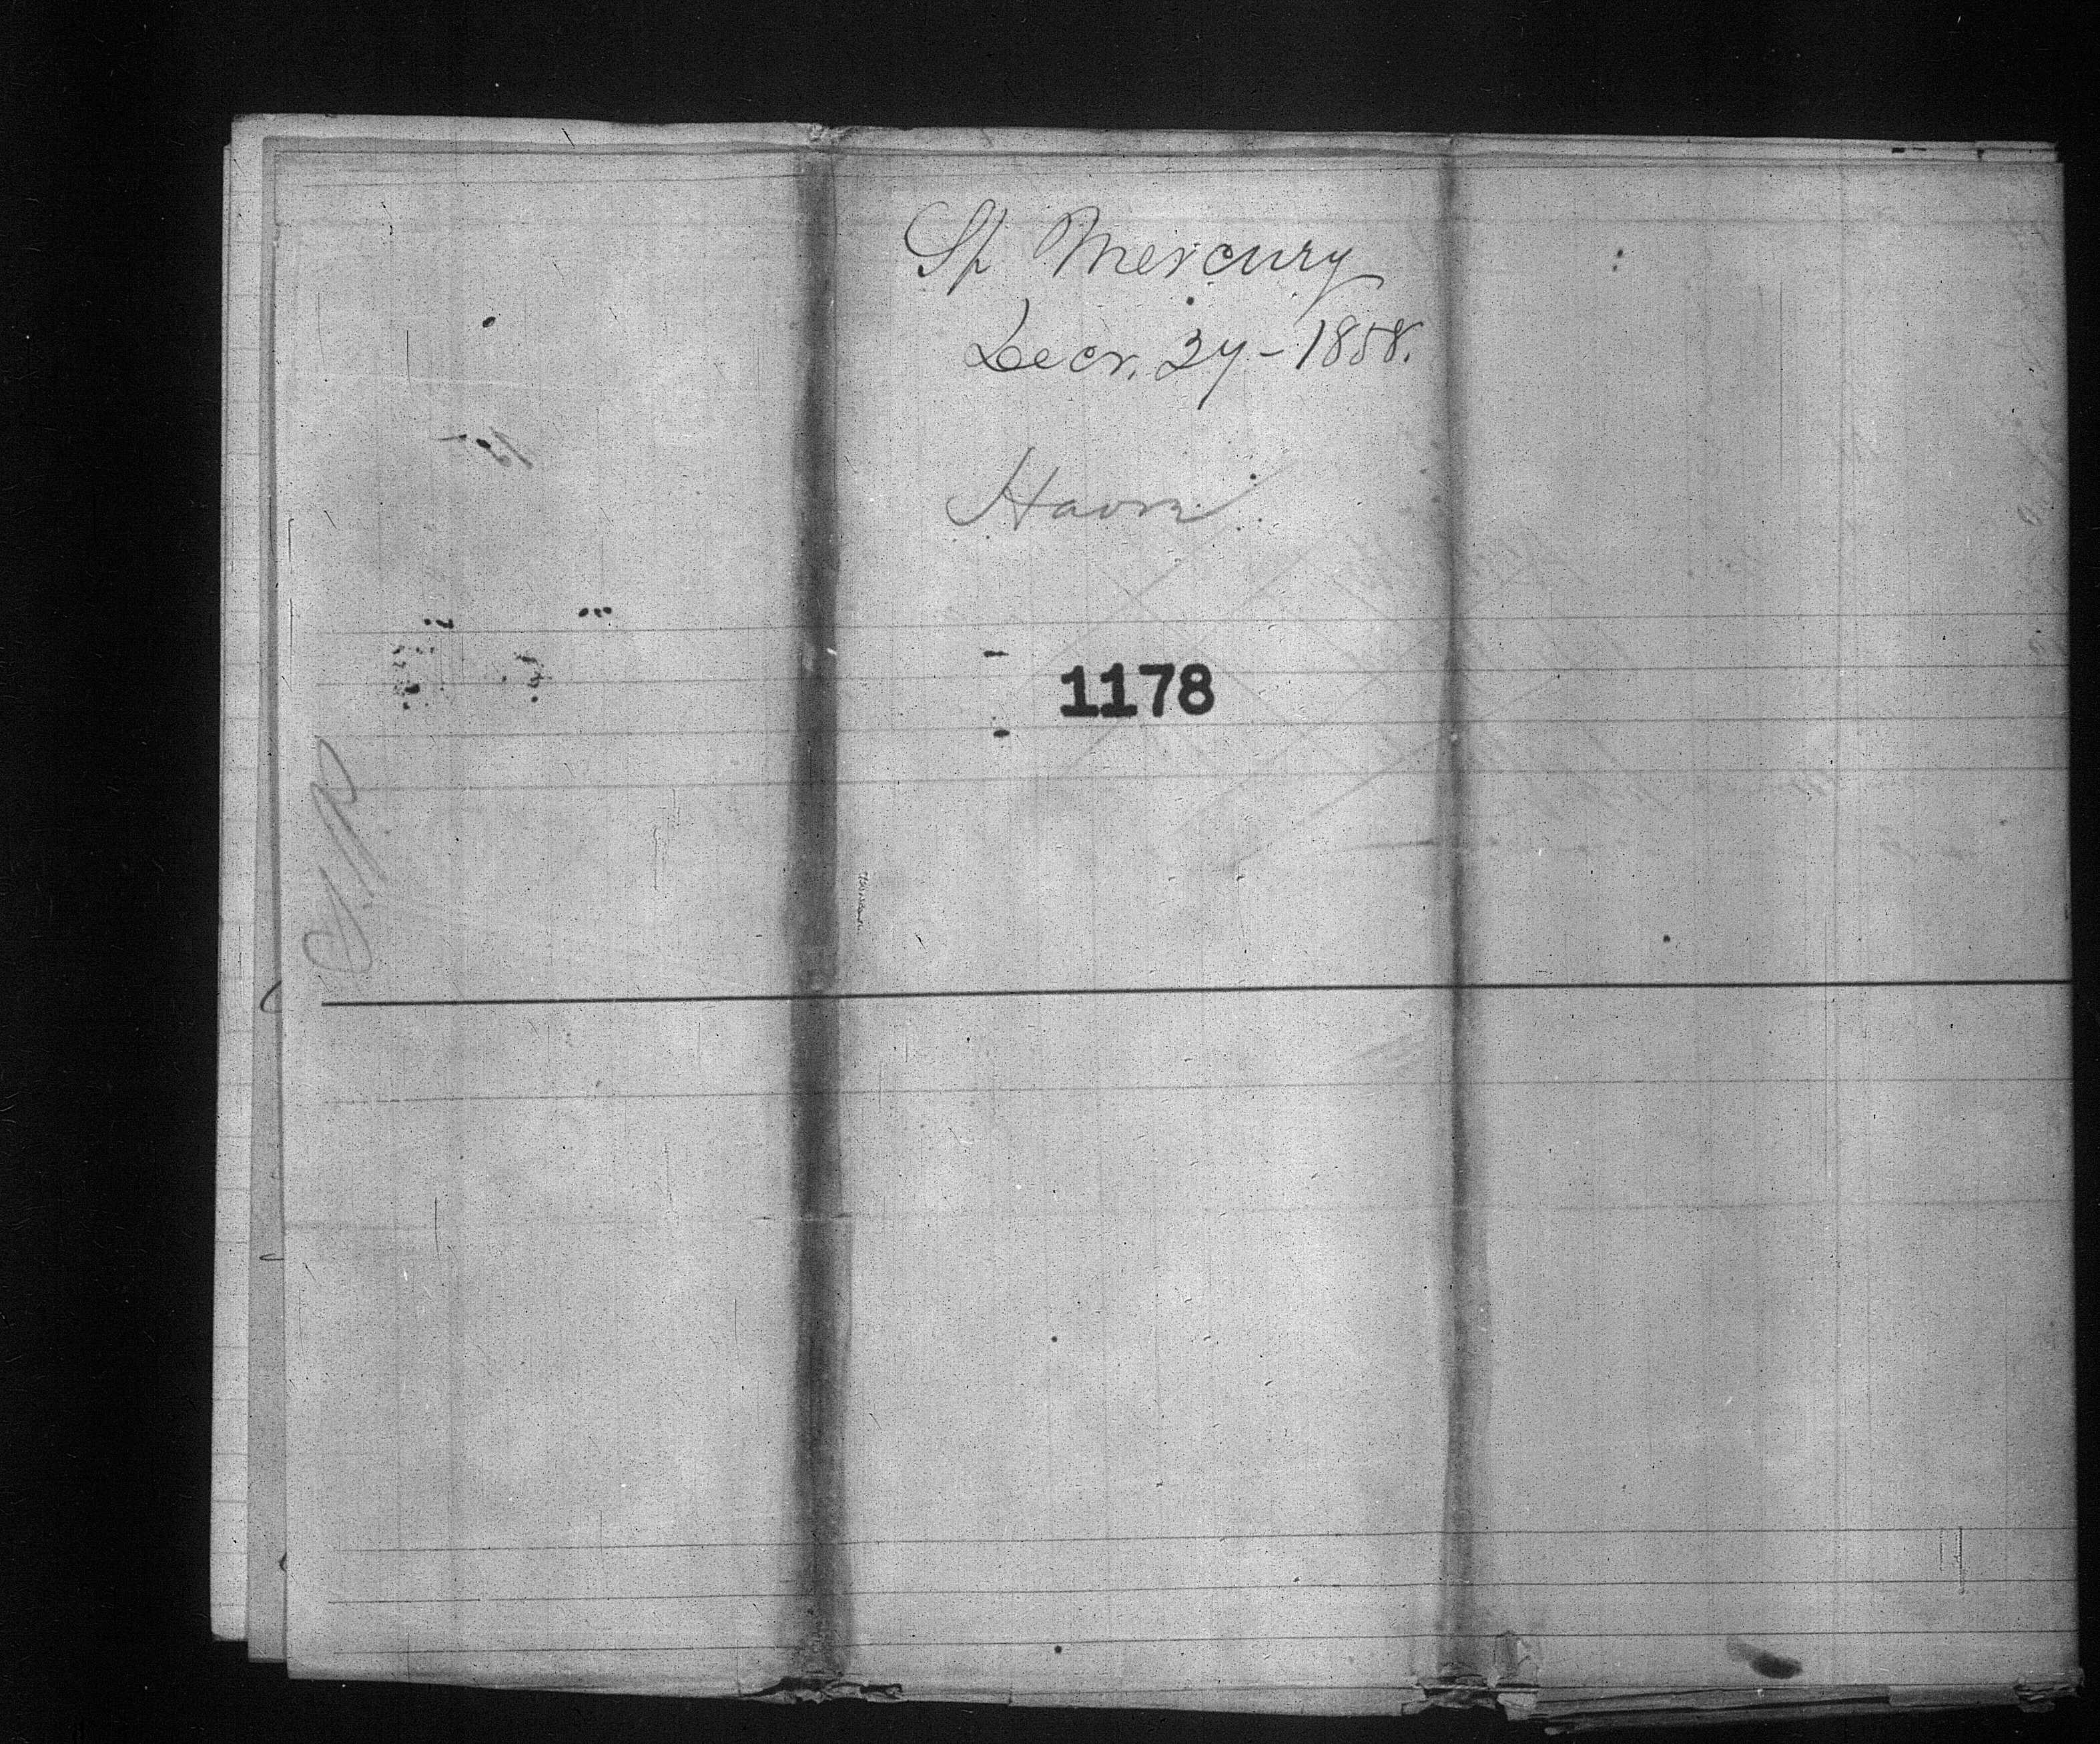 Sh Mercury
Decr. 27 - 1858.
Havre
1178